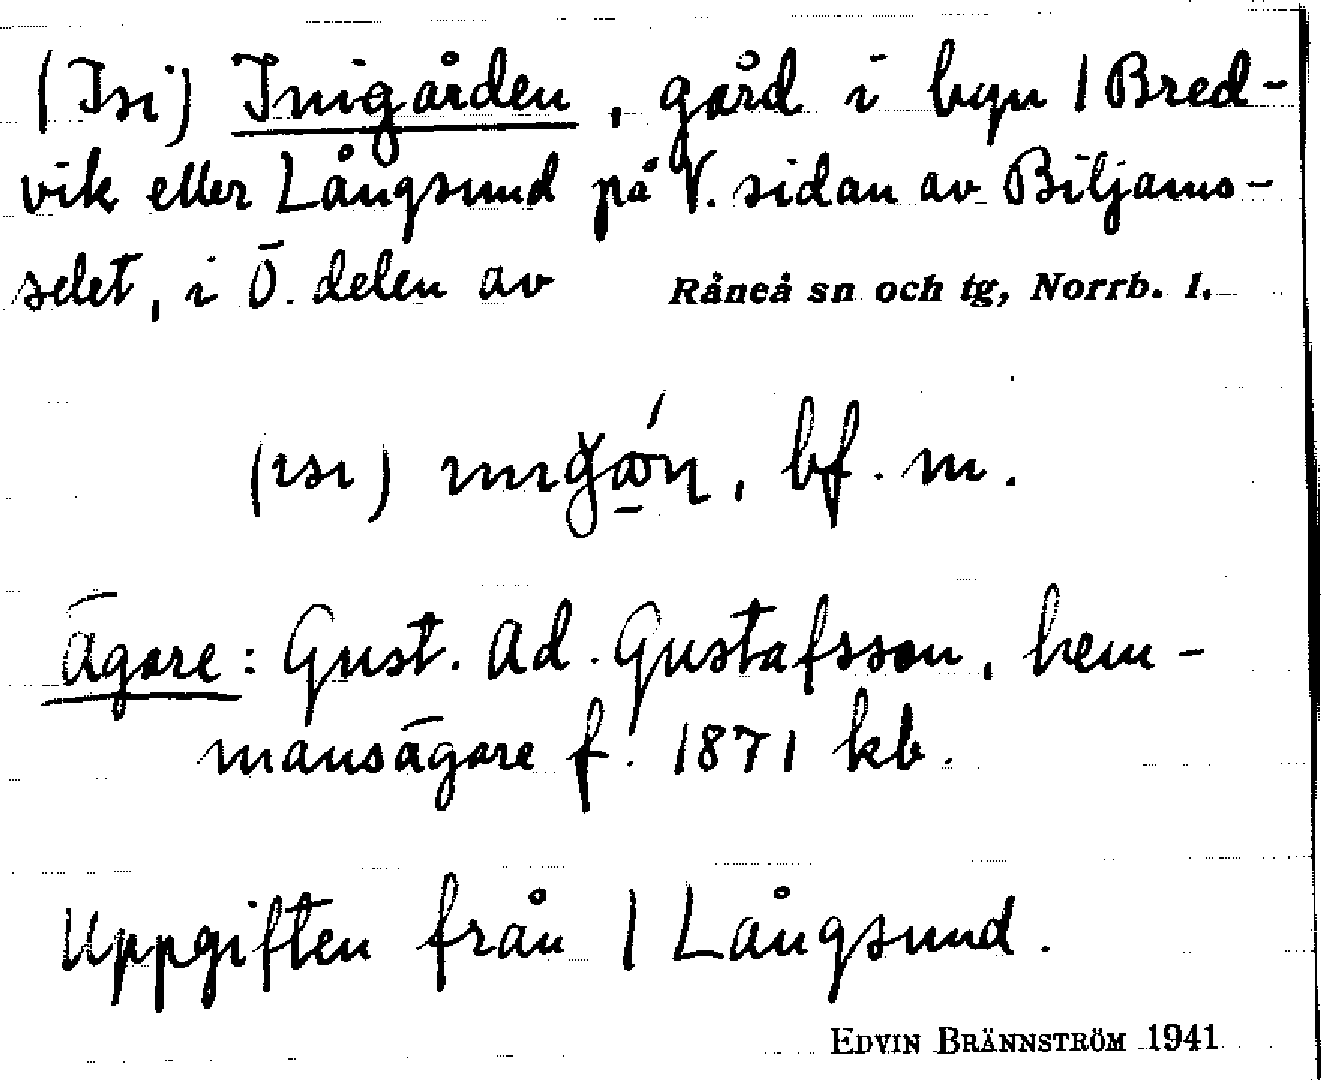 (Isi) Inigården, gård i byn | Bred-
vik eller Långsund på V. sidan av Biljams-
selet, i Ö. delen av Råneå sn och tg, Norrb. l.
bf. m.
Ägare: Gust. Ad. Gustafsson, hem-
mansägare f. 1871 kb.
Uppgiften från | Långsund.
EDVIN BRÄNNSTRÖM 1941